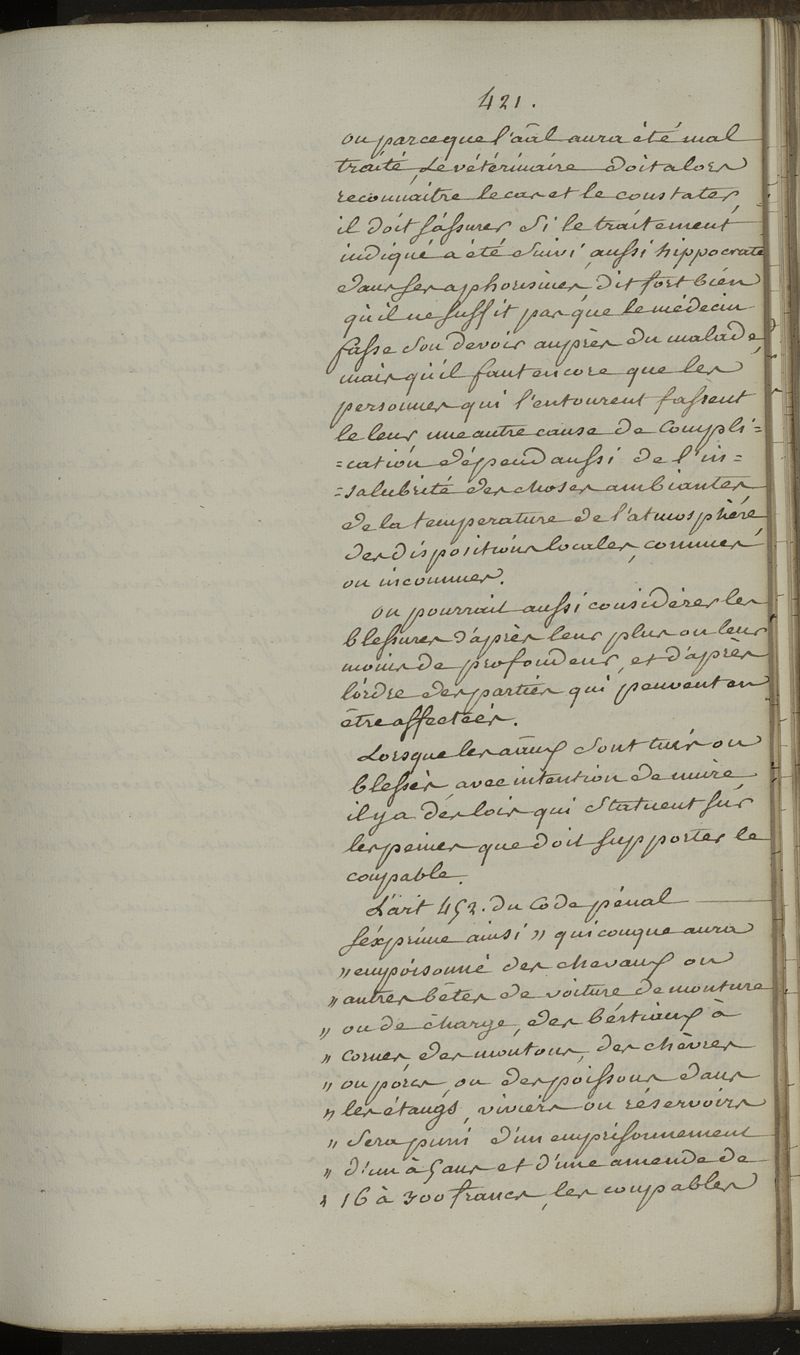 421.
ou parceque l'aâl aura été mal
traité, Le vétérinaire doit alors
reconnaitre le cas et le constater,
il doit s'assurer Si le traitement
indiqué a été Suivi, aussi hippocrate
dans ses aphorismes, dit fort bien
qu'il ne suffit pas que le médecin
fasse Son devoir auprès du malade,
mais qu'il faut encore que les
personnes qui l'entourent fassent
le leur une autre cause de Compli=
=cation dépend aussi de l'in=
=salubrité des choses ambiantes
de la temperature de l'atmosphère
des dispositions locales, connues
ou inconnues.
on pourrait aussi considérer les
blessures d'après leur plus ou leur
moins de profondeur, et d'après
l'ordre des parties qui peuvent en
être affectées.
Lorsque les aâux Sont tués ou
blessés, avec intention de nuire,
il y a des lois qui Statuent sur
les peines que doit supporter le
coupable.
L'art 452. du Code pénal
s'exprime ainsi » quiconque aura
» empoisonné des chevaux ou
» autres bêtes de voiture de monture
» ou de charge, des bestiaux à
» cornes, des moutons, des chèvres
» ou porcs, ou des poissons dans
» les étangs, viviers ou réservoirs
» Sera puni d'un emprisonnement
» d'un à 5 ans et d'une amende de
» 16 à 300 francs, les coupables